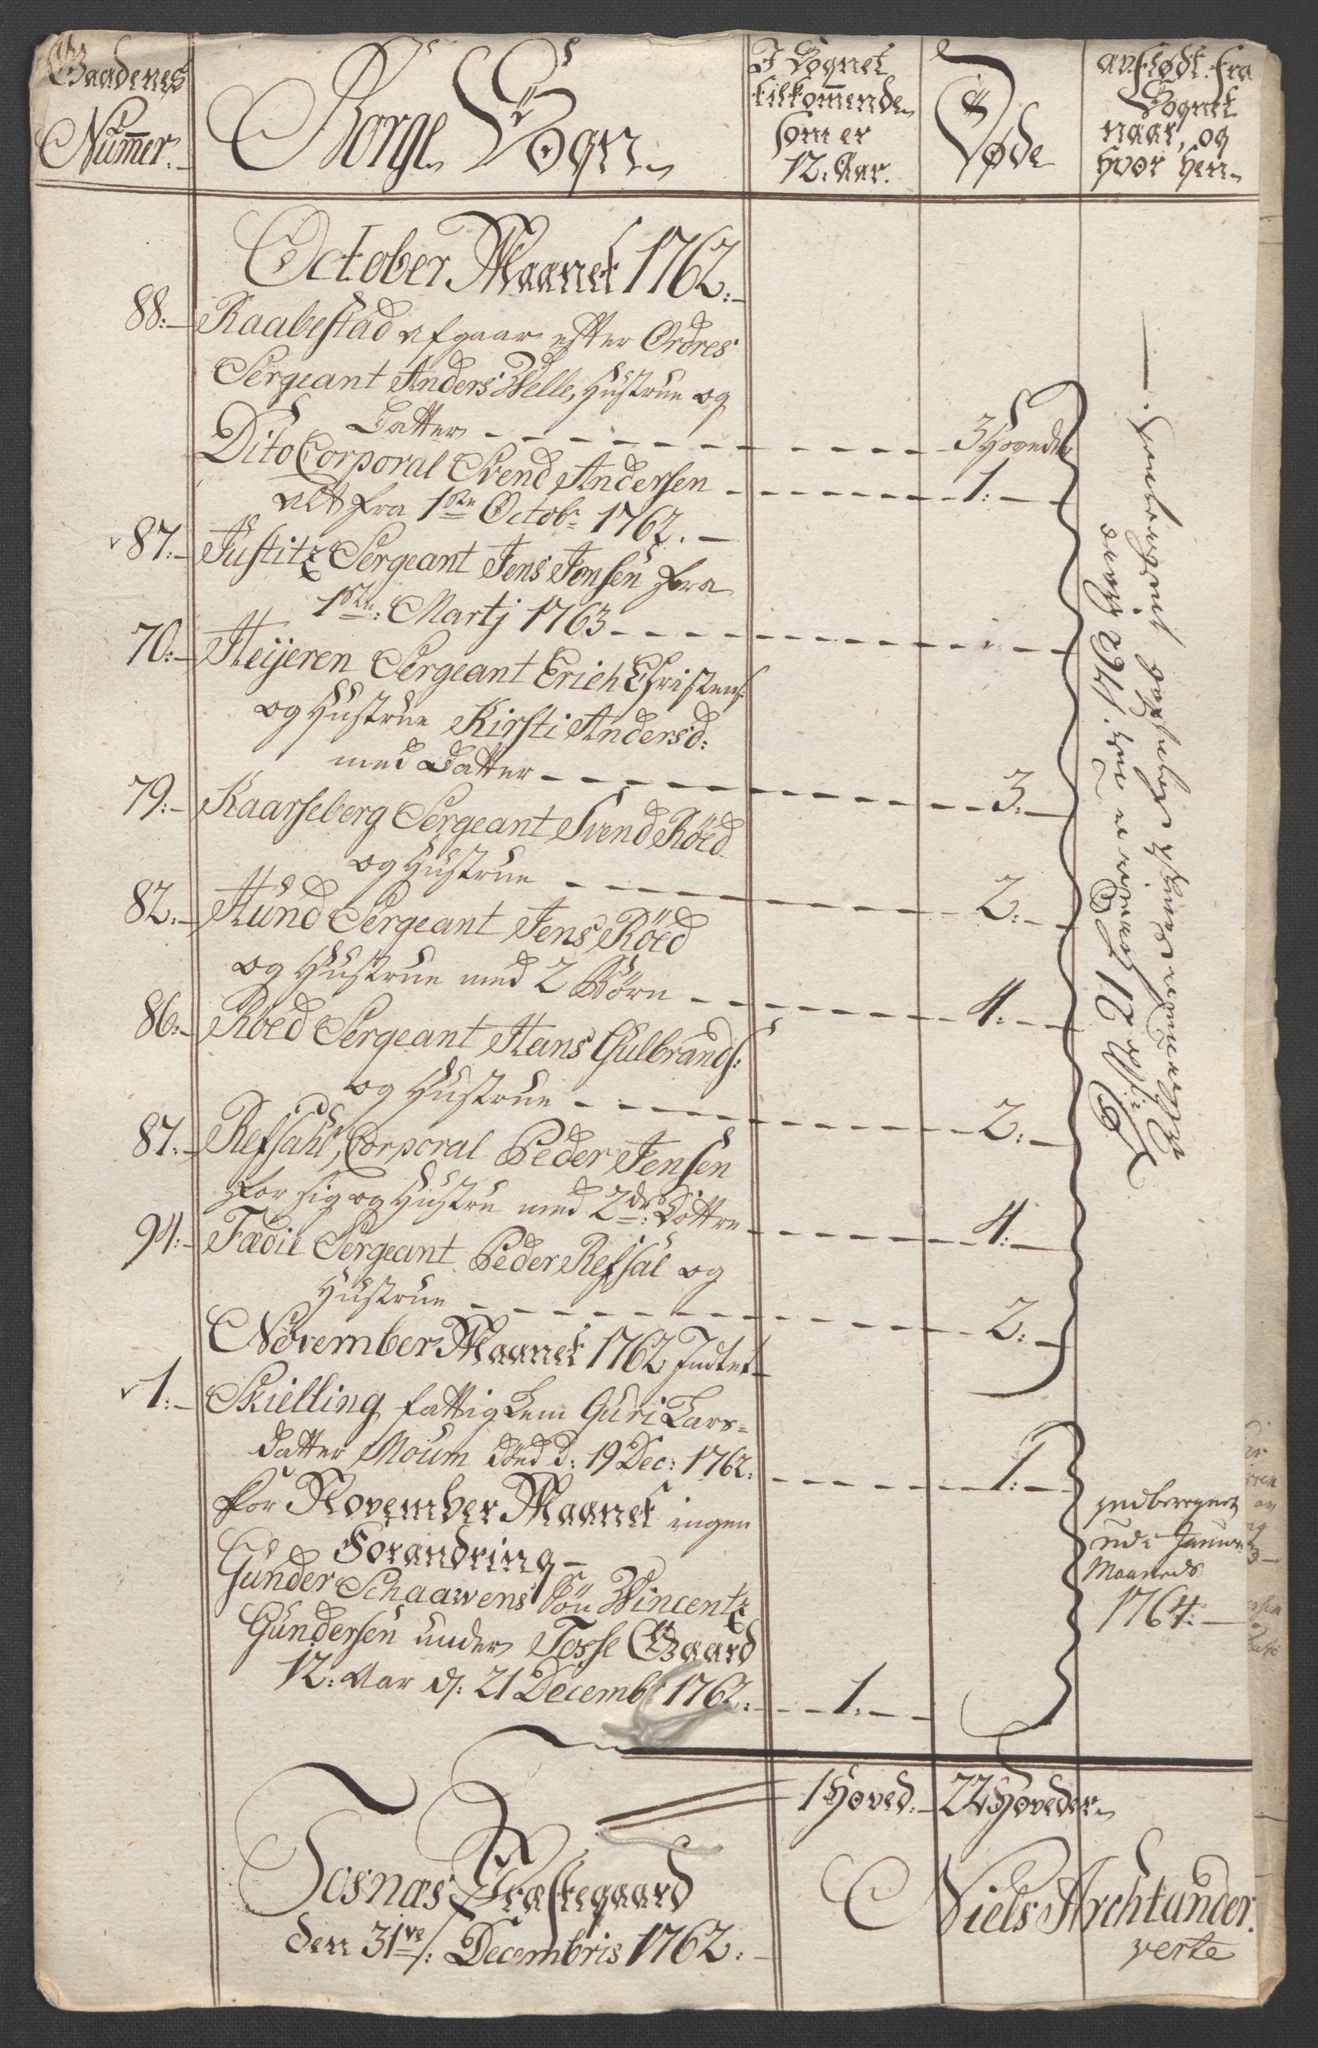 Gaadenes
Nummer.
Borge Sogn
I Sognet
tilkommende
som er
12. Aar.
Døde
anflødt fra
Sognet
naar, og
hvor hen
October Maanet 1762.
88. Raabestad afgaar efter Ordres
Sergeant Anders Welle, Hustrue og
Datter 3 Hoveder
Dito Corporal Svend Andersen 1.
alt fra 1ste Octobr 1762.
87. Justitz Sergeant Jens Jensen fra
1ste Martj 1763
70. Heijeren Sergeant Erich Christens:
og Hustrue Kirsti Andersd:
med Datter 3.
79. Kaarseberg Sergeant Svend Röed
og Hustrue 2.
82. Hund Sergeant Jens Röed
og Hustrue med 2 Børn 4.
86. Röed Sergeant Hans Gulbrands:
og Hustrue 2.
87. Refsahl, Corporal Peder Jensen
for sig og Hustru med 2de Döttre 4.
94. Tædie Sergeant Peder Refsal og
Hustrue 2.
November Maanet 1762 Intet
1. Skielling fattig Lem Guri Lars-
datter Moum död d: 19 Dec: 1762. 1.
for November Maanet ingen
Forandring
indberegnet
udi Januar
Maaneds
1764.
Gunder Schaawens Sön Wincentz
Gundersen under Tosse Gaard
12. Aar d: 21 Decembr 1762. 1.
1 Hoved. 22 Hoveder
Tosnæs Præstegaard
den 31te Decembris 1762.
Niels Archtander.
verte